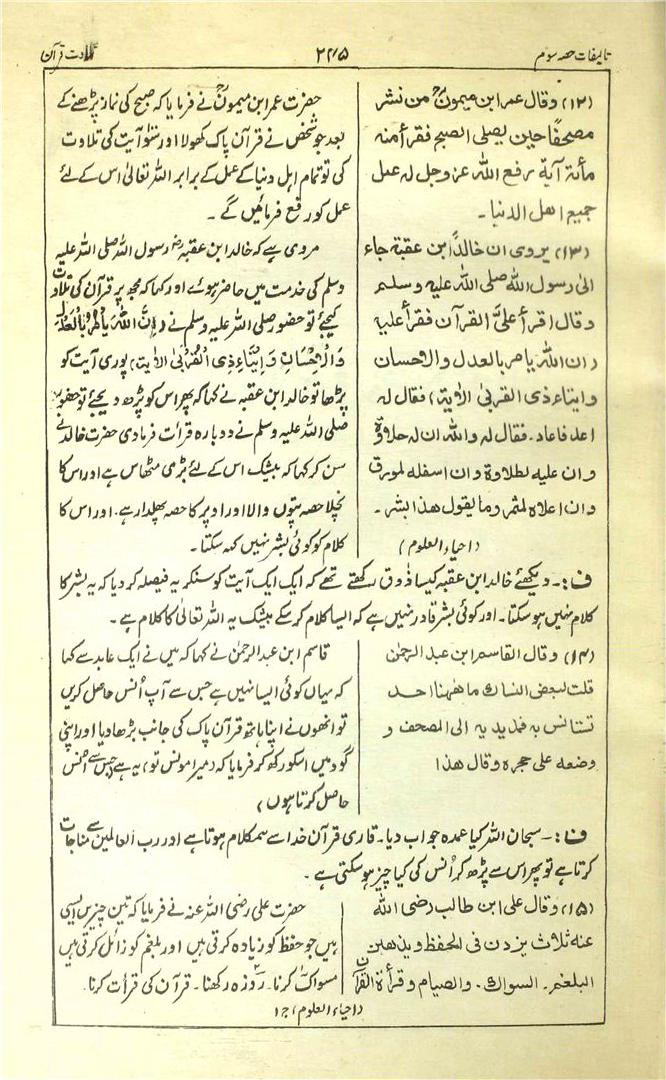 تالیفات حصہ سوم
۲۲۵
تلاوت قرآن
(۱۲) وقال عمر ابن میمونؒ من نشر
مصحفًا حین یصلی الصبح فقرأ منہ
مأتۃ آیۃ یرفع اللہ عز وجل لہ عمل
جمیع اھل الدنیا۔
حضرت عمر ابن میمونؒ نے فرمایا کہ صبح کی نماز پڑھنے کے
بعد جو شخص نے قرآن پاک کھولا اور سَو آیت کی تلاوت
کی تو تمام اہل دنیا کے عمل کے برابر اللہ تعالیٰ اس کے لئے
عمل کو رفع فرمائیں گے۔
(۱۳) یروی ان خالدًا ابن عقبۃ جاء
الی رسول اللہ صلی اللہ علیہ وسلم
وقال اقرأ علیَّ القرآن فقرأ علیہ
(ان اللہ یامر بالعدل والاحسان
وایتاء ذی القربیٰ الاٰیۃ) فقال لہ
اعد فاعاد۔ فقال لہ واللہ ان لہ حلاوۃ
وان علیہ لطلاوۃ وان اسفلہ لمورق
وان اعلاہ لمثمر وما یقول ھذا بشر۔
(احیاء العلوم)
مروی ہے کہ خالد ابن عقبہؓ رسول اللہ صلی اللہ علیہ
وسلم کی خدمت میں حاضر ہوئے اور کہا کہ مجھ پر قرآن کی تلاوت
کیجئے تو حضور صلی اللہ علیہ وسلم نے (اِنَّ اللہَ یَاْمُرُ بِالْعَدْلِ
وَالْاِحْسَانِ وَاِیْتَاءِ ذِی الْقُرْبیٰ الاٰیۃ) پوری آیت کو
پڑھا تو خالد ابن عقبہ نے کہا کہ پھر اس کو پڑھ دیجئے تو حضور
صلی اللہ علیہ وسلم نے دوبارہ قرأت فرمادی حضرت خالد نے
سن کر کہا کہ بیشک اس کے لئے بڑی مٹھاس ہے اور اس کا
نچلا حصہ پتوں والا اور اوپر کا حصہ پھلدار ہے۔ اور اس کا
کلام کو کوئی بشر نہیں کہہ سکتا۔
ف:۔ دیکھئے خالد ابن عقبہ کیسا ذوق رکھتے تھے کہ ایک ایک آیت کو سنکر یہ فیصلہ کر دیا کہ یہ بشر کا
کلام نہیں ہو سکتا۔ اور کوئی بشر قادر نہیں ہے کہ ایسا کلام کر سکے بیشک یہ اللہ تعالیٰ کا کلام ہے۔
(۱۴) وقال القاسم ابن عبد الرحمٰن
قلت لبعض النساک ما ھھنا احد
تستانس بہ فمد یدیہ الی المصحف و
وضعہ علی حجرہ وقال ھذا
قاسم ابن عبد الرحمٰن نے کہا کہ میں نے ایک عابد سے کہا
کہ یہاں کوئی ایسا نہیں ہے جس سے آپ اُنس حاصل کریں
تو انھوں نے اپنا ہاتھ قرآن پاک کی جانب بڑھا دیا اور اپنی
گود میں اسکو رکھ کر فرمایا کہ (میرا مونس تو) یہ ہے (جس سے اُنس
حاصل کرتا ہوں)
ف:۔ سبحان اللہ کیا عمدہ جواب دیا۔ قاری قرآن خدا سے ہمکلام ہوتا ہے اور رب العالمین سے مناجات
کرتا ہے تو پھر اس سے بڑھ کر اُنس کی کیا چیز ہو سکتی ہے۔
(۱۵) وقال علی ابن طالب رضی اللہ
عنہ ثلاث یزدن فی الحفظ ویذھبن
البلغم۔ السواک۔ والصیام وقرأۃ القرآن
حضرت علی رضی اللہ عنہ نے فرمایا کہ تین چیزیں ایسی
ہیں جو حفظ کو زیادہ کرتی ہیں اور بلغم کو زائل کرتی ہیں
مسواک کرنا۔ روزہ رکھنا۔ قرآن کی قرأت کرنا۔
(احیاء العلوم ج۱)